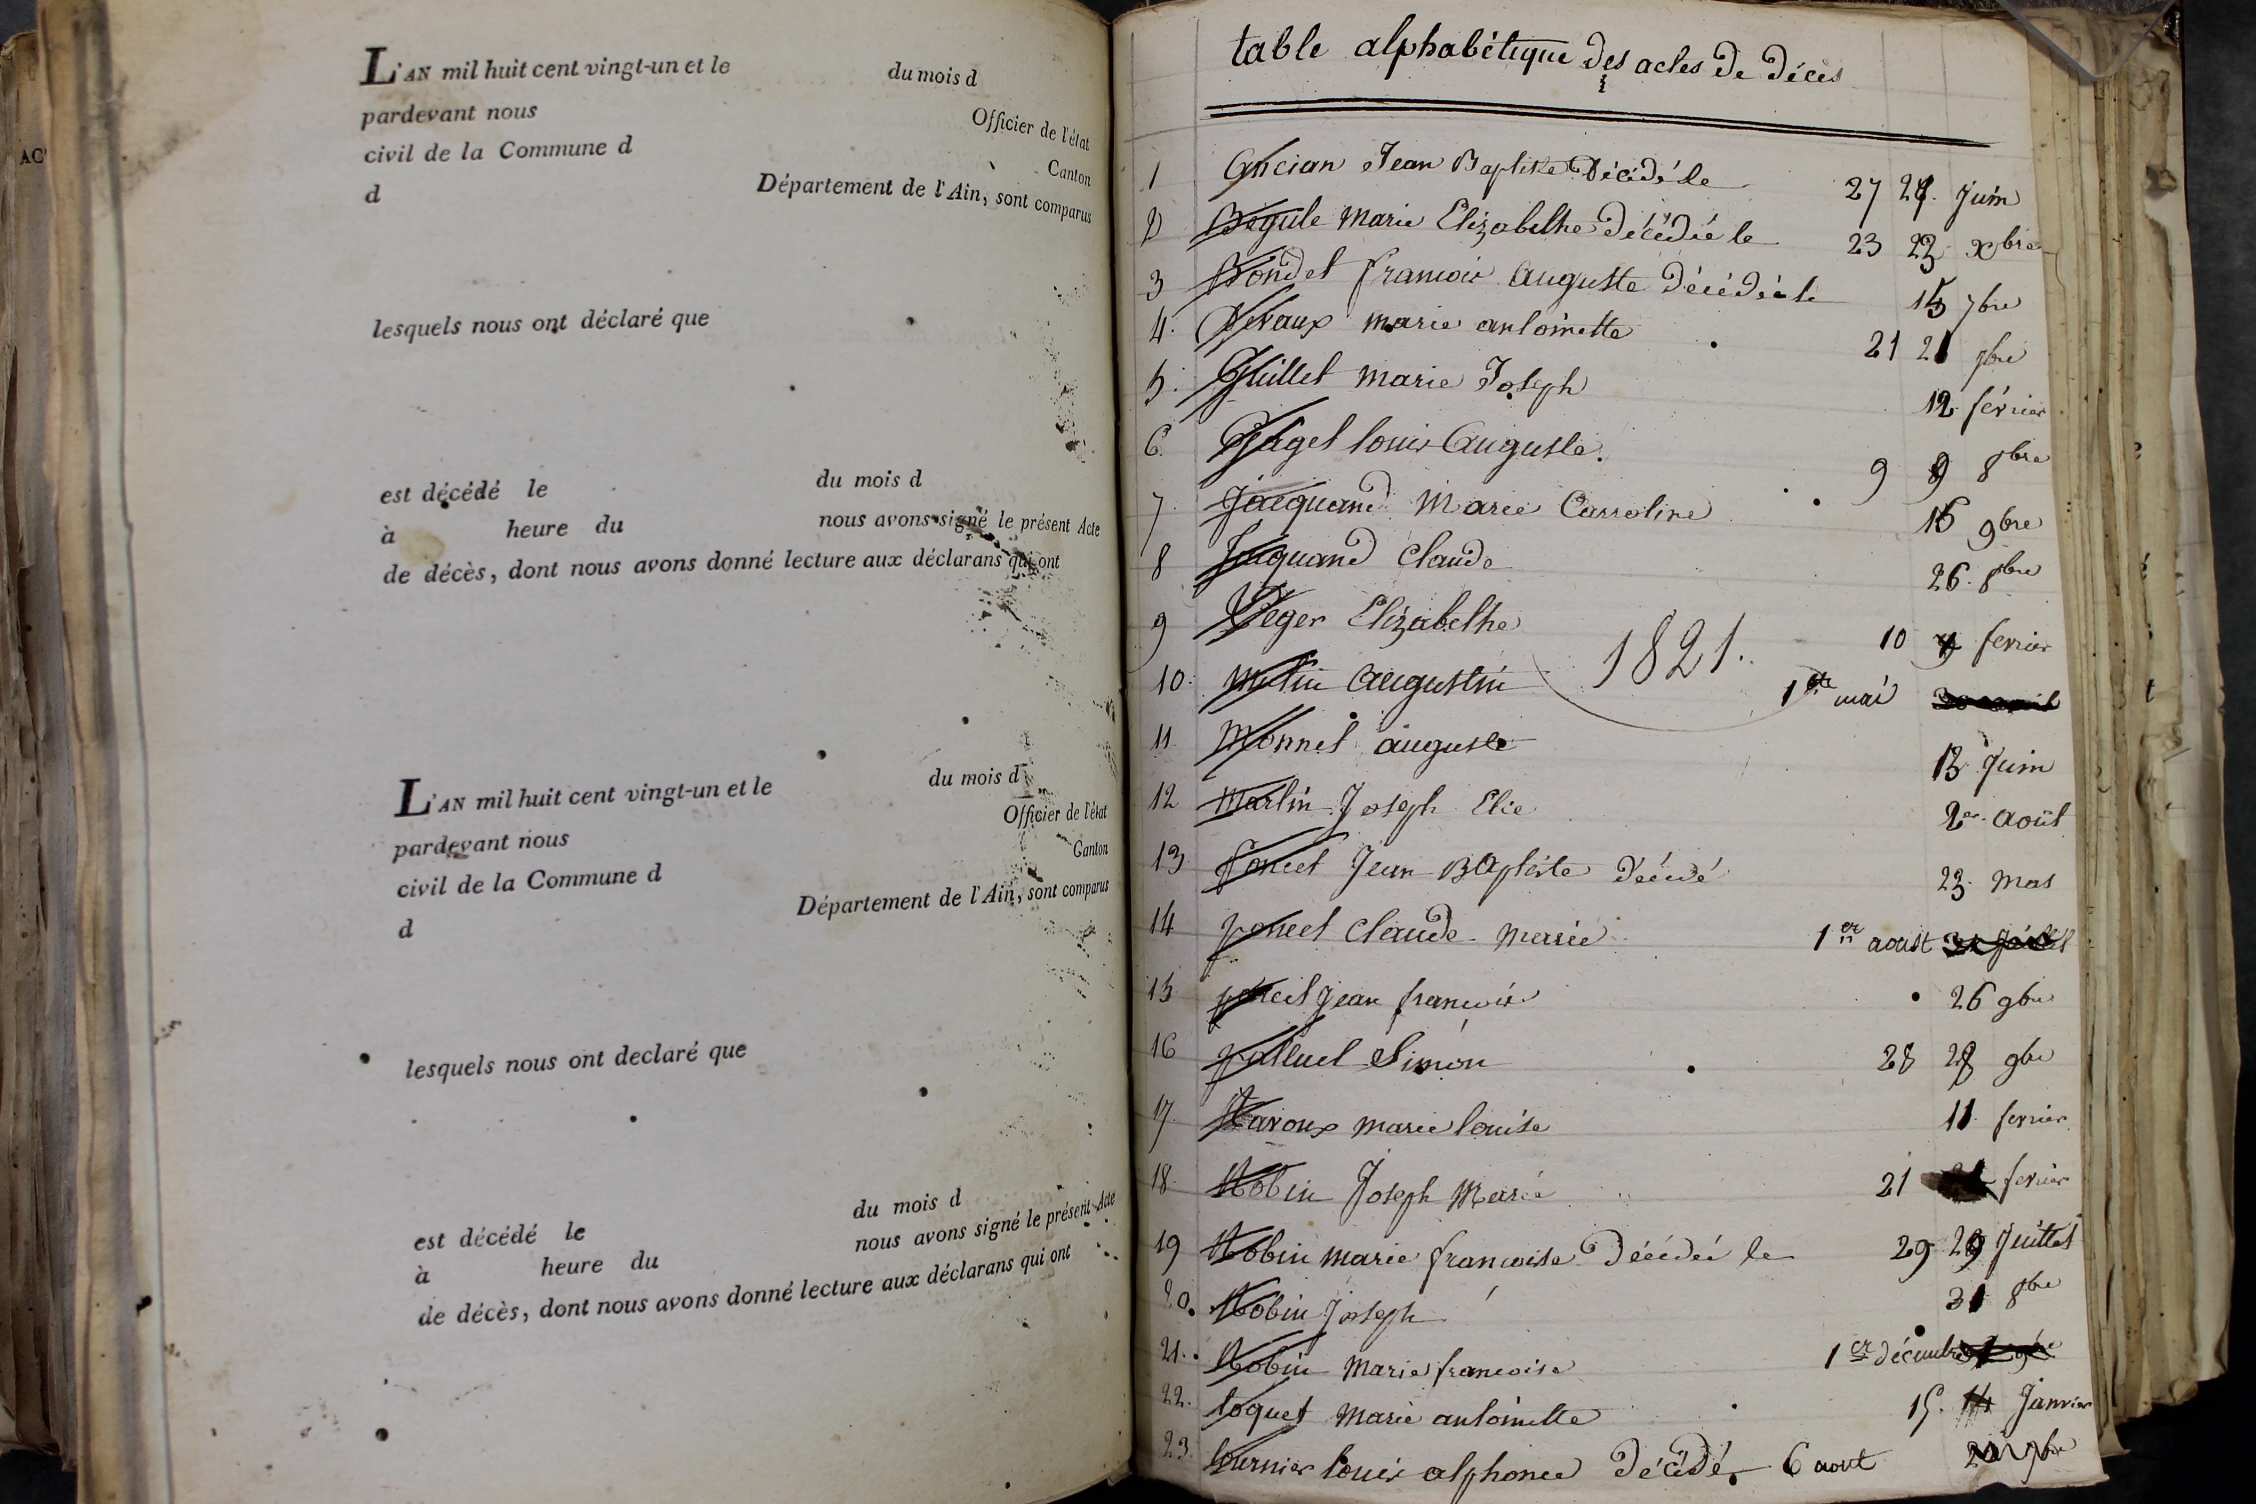 AC
L'AN mil huit cent vingt-un et le du mois d
pardevant nous Officier de l'état
civil de la Commune d Canton
d Département de l'Ain, sont comparus
lesquels nous ont déclaré que
est décédé le du mois d
à heure du nous avons signé le présent Acte
de décès, dont nous avons donné lecture aux déclarans qui ont
L'AN mil huit cent vingt-un et le du mois d
pardevant nous Officier de l'état
civil de la Commune d Canton
d Département de l'Ain, sont comparus
lesquels nous ont declaré que
est décédé le du mois d
à heure du nous avons signé le présent Acte
de décès, dont nous avons donné lecture aux déclarans qui ont
table alphabétique des actes de décès
1 Ancian Jean Baptiste Décédé le 27 juin
2 Begule Marie Elizabethe décédée le 23 23 xbre
3 Bondet francois Auguste décédé le 15 7bre
4. marie antoinette 21 21
5. Guillet Marie Joseph 12 février
6. Gaget louis Auguste. 9 9 8bre
7. Jacquand Marie Carroline 16 9bre
8 Jacquand Claude 26. 8bre
9 Leger Elizabethe 10 fevrier
10. Augustin 1er mai
1821.
11 Monnet auguste 13 Juin
12 Martin Joseph Elie 2 Août
13. Poncet Jean Baptiste décédé 23. Mas
14 poncet Claude Marie 1er aoust
15 poncet Jean francois 26 9bre
16 Simon 28 28 9bre
17. Ravoux marie louise 11 fevrier
18. Robin Joseph Marie 21 fevrier
19 Robin Marie francoise Décédée le 29 29 Juillet
20. Robin Joseph 31 8bre
21. Robin Marie francoise 1er décembre
22. toquet Marie antoinette 15. 14 Janvier
23. tournier louis alphonce Décédé 6 aout